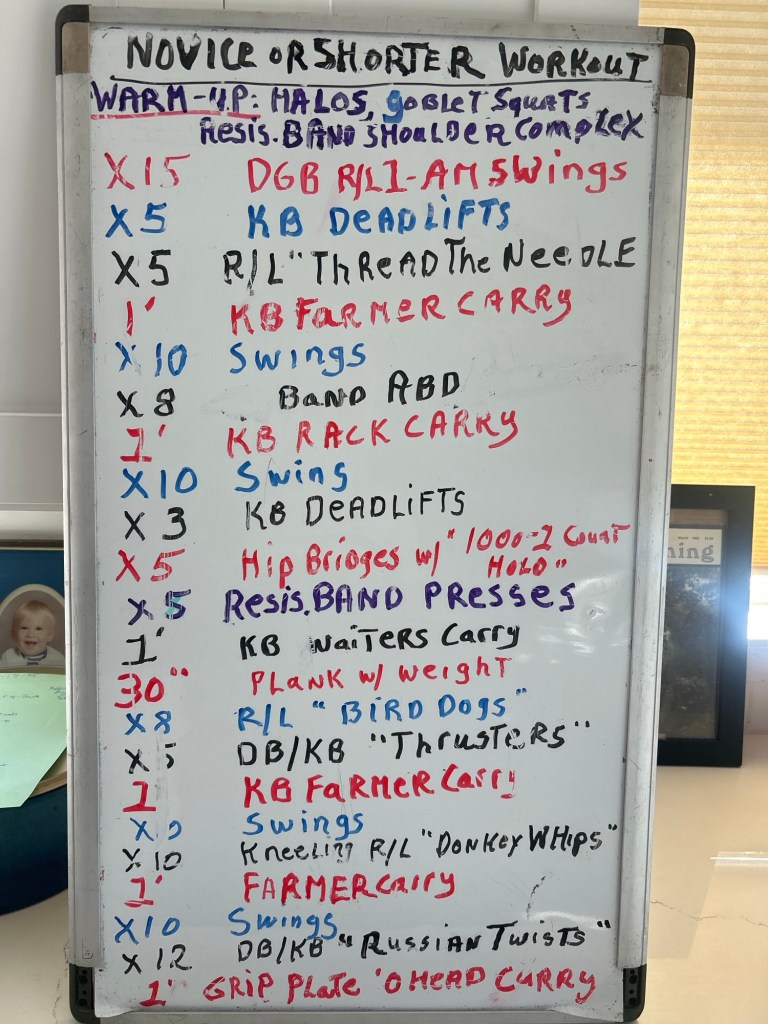 NOVICE OR SHORTER WORKOUT
WARM-UP: HALOS, goBLET SquATS
Resis. BAND SHOULDER Complex
X15 DGB R/L 1-AM SWings
X5 KB DeADLiFTS
X5 R/L "ThReAD The NeeDLE
1' KB FaRMER CARRY
X10 Swings
X8 BanD ABD
1' KB RACK CARRY
X10 Swing
X3 KB DeADLiFTS
X5 Hip BriDges w/ "1000-1 Count
HoLD"
X5 Resis. BAND PResses
1' KB WaiTeRs Carry
30" PLANK w/ weigHT
X8 R/L "BiRD Dogs"
X5 DB/KB "ThrusTeRs"
1 KB FaRMeR Carry
X Swings
X10 Kneeling R/L "DonKey WHips"
1' FARMER Carry
X10 Swings
X12 DB/KB "Russian TwisTs"
1' GRiP PLaTe 'O HeAD CURRY
ning